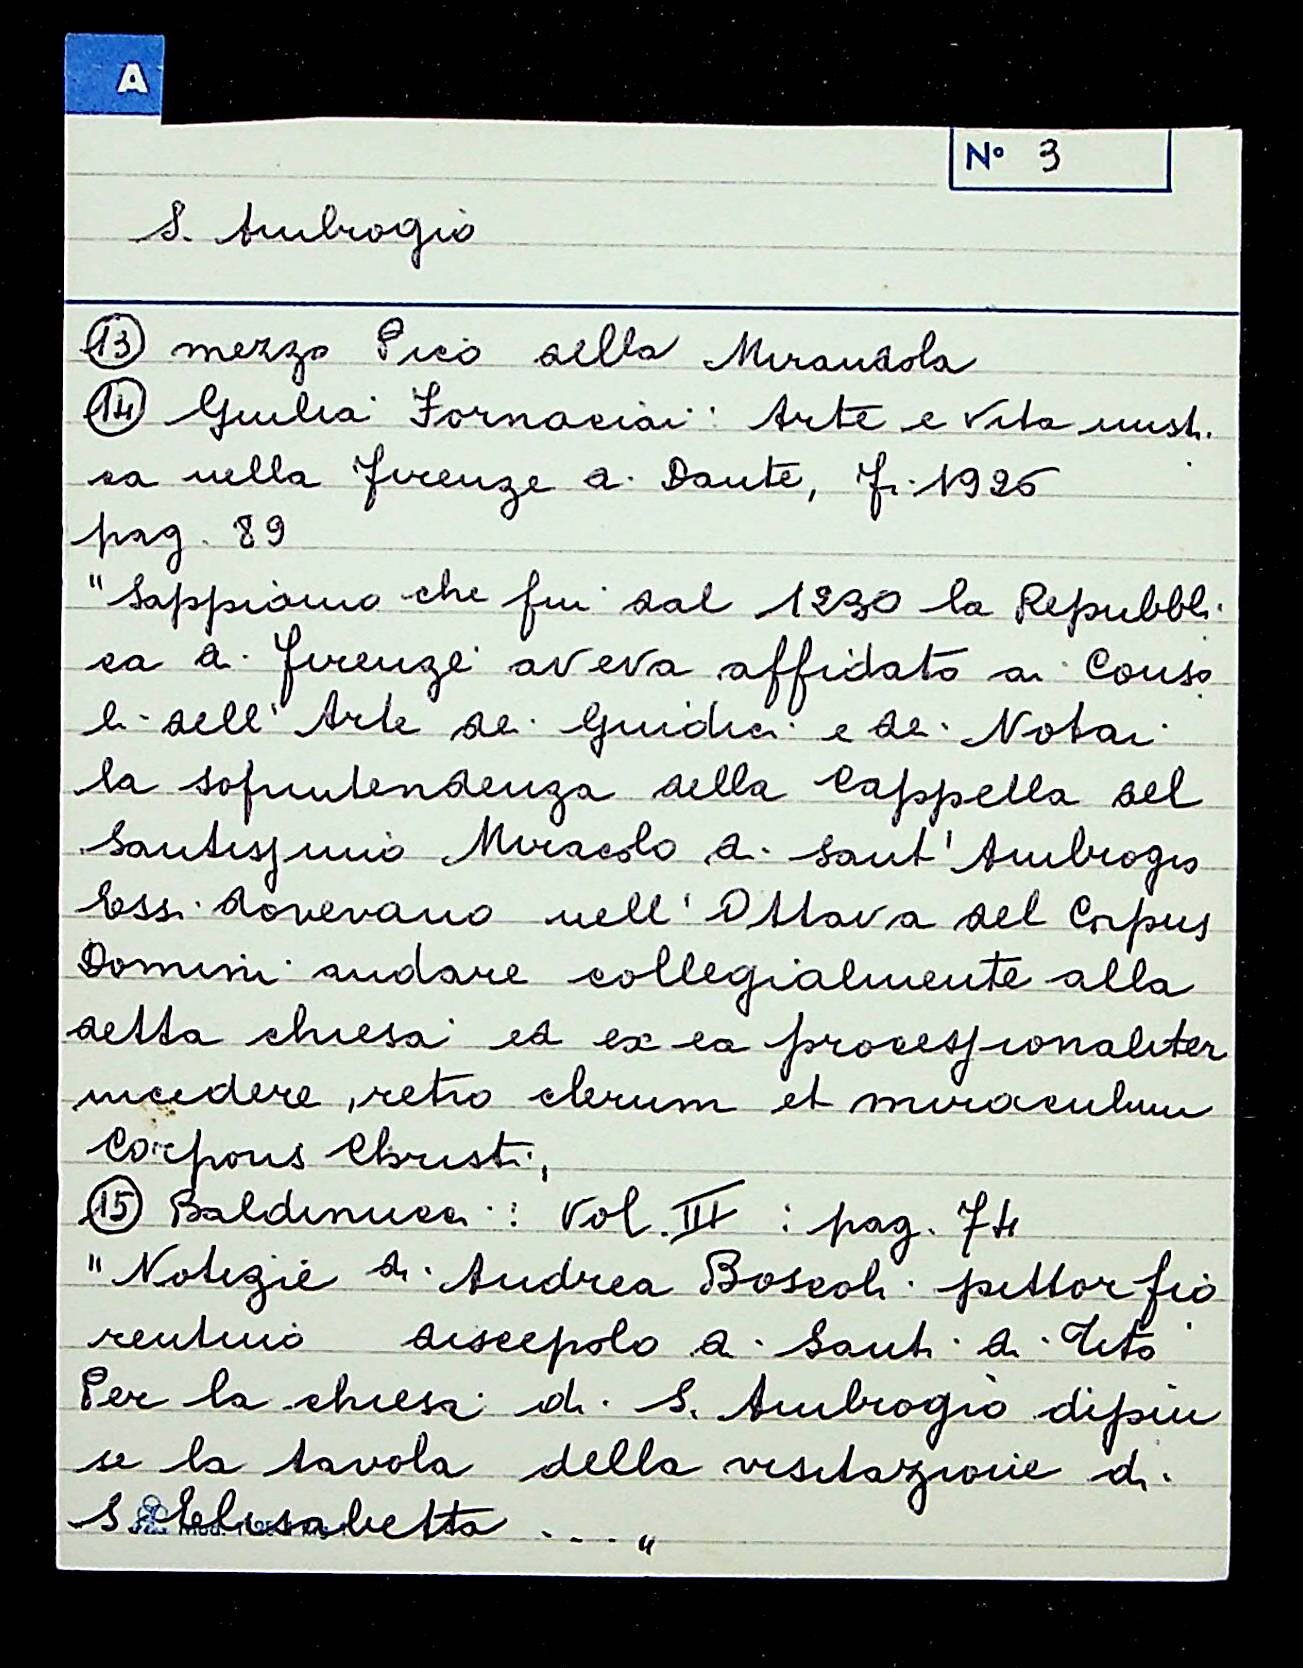 A
N° 3
S. Ambrogio
13 mezzo Pico della Mirandola
14 Giulia Fornaciai: Arte e Vita misti
ca nella Firenze di Dante, Fi. 1926
pag. 89
"Sappiamo che fin dal 1230 la Repubbli
ca di Firenze aveva affidato ai Conso
li dell'Arte dei Giudici e dei Notai
la sopintendenza della Cappella del
Santissimo Miracolo di Sant'Ambrogio
Essi dovevano nell'Ottava del Corpus
Domini andare collegialmente alla
detta chiesa ed ex ea processionaliter
incedere, retro clerum et miraculum
Corporis Christi,
15 Baldinucci: Vol. III: pag. 74
"Notizie di Andrea Boscoli pittor fio
rentino discepolo di Santi di Tito
Per la chiesa di S. Ambrogio dipin
se la tavola della visitazione di
S Elisabetta ...."